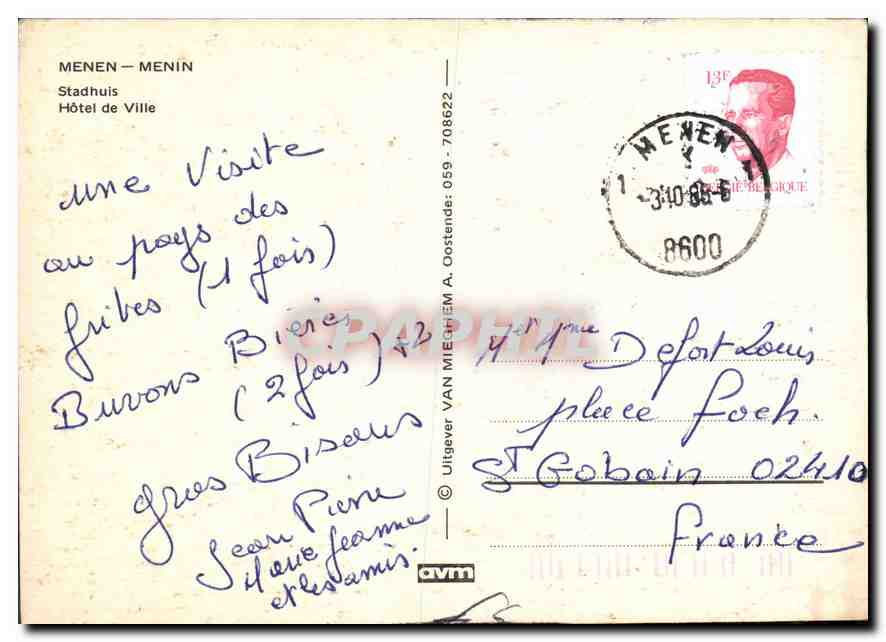 MENEN — MENIN
Stadhuis
Hôtel de Ville
une visite
au pays des
frites (1 fois)
Buvons Bières
(2 fois) +2
gros Bisous
Jean Pierre
Marie Jeanne
et les amis.
© Uitgever VAN MIEGHEM A. Oostende: 059 - 708622
avm
13F
BELGIË-BELGIQUE
MENEN
1 1
8600
CPAPHIL
Mr et Mme Defort Louis
place Foch.
St Gobain 02410
France